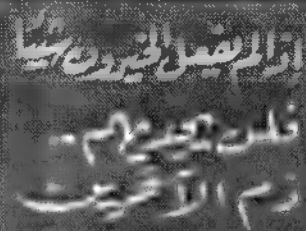 إذا لم يفعل الخيرون شيئا
فلن يجديهم ..
ذم الآخرين